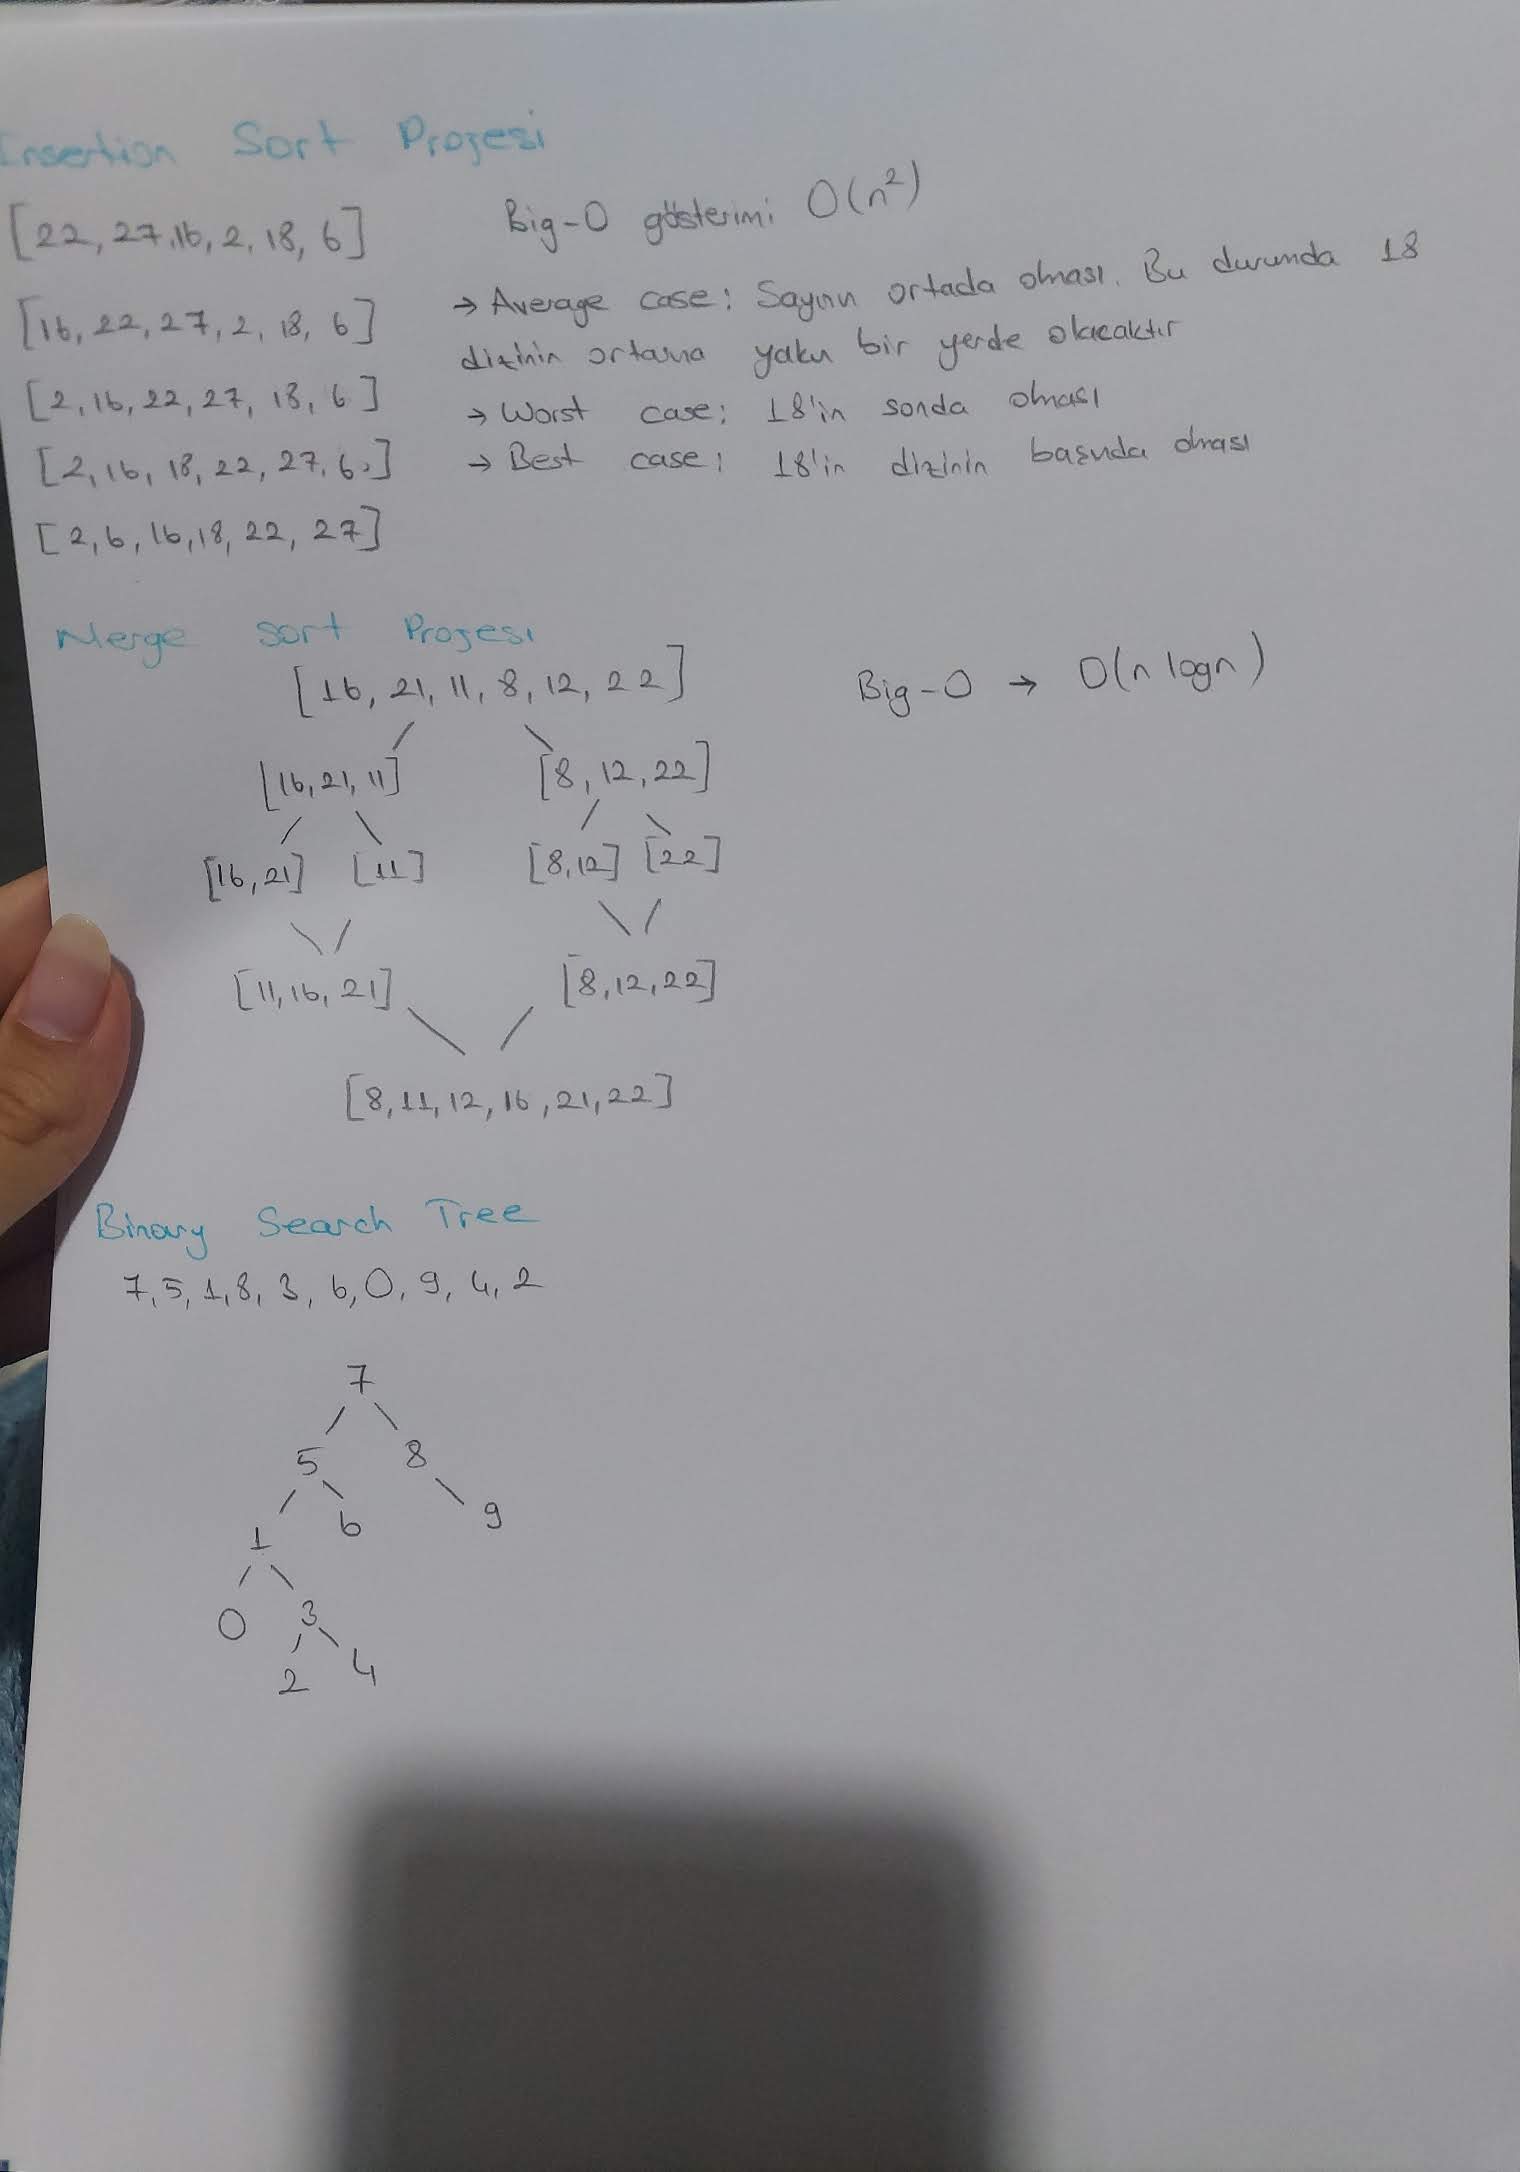 Insertion Sort Projesi
[22, 27, 16, 2, 18, 6]
Big-O gösterimi O(n²)
[16, 22, 27, 2, 18, 6]
[2, 16, 22, 27, 18, 6]
[2, 16, 18, 22, 27, 6]
[2, 6, 16, 18, 22, 27]
→ Average case: Sayının ortada olması. Bu durumda 18
dizinin ortasına yakın bir yerde olacaktır
→ Worst case: 18'in sonda olması
→ Best case: 18'in dizinin başında olması
Merge Sort Projesi
[16, 21, 11, 8, 12, 22]
Big-O → O(n logn)
[16, 21, 11] [8, 12, 22]
[16, 21] [11] [8, 12] [22]
[11, 16, 21] [8, 12, 22]
[8, 11, 12, 16, 21, 22]
Binary Search Tree
7, 5, 1, 8, 3, 6, 0, 9, 4, 2
7
5 8
1 6 9
0 3
2 4